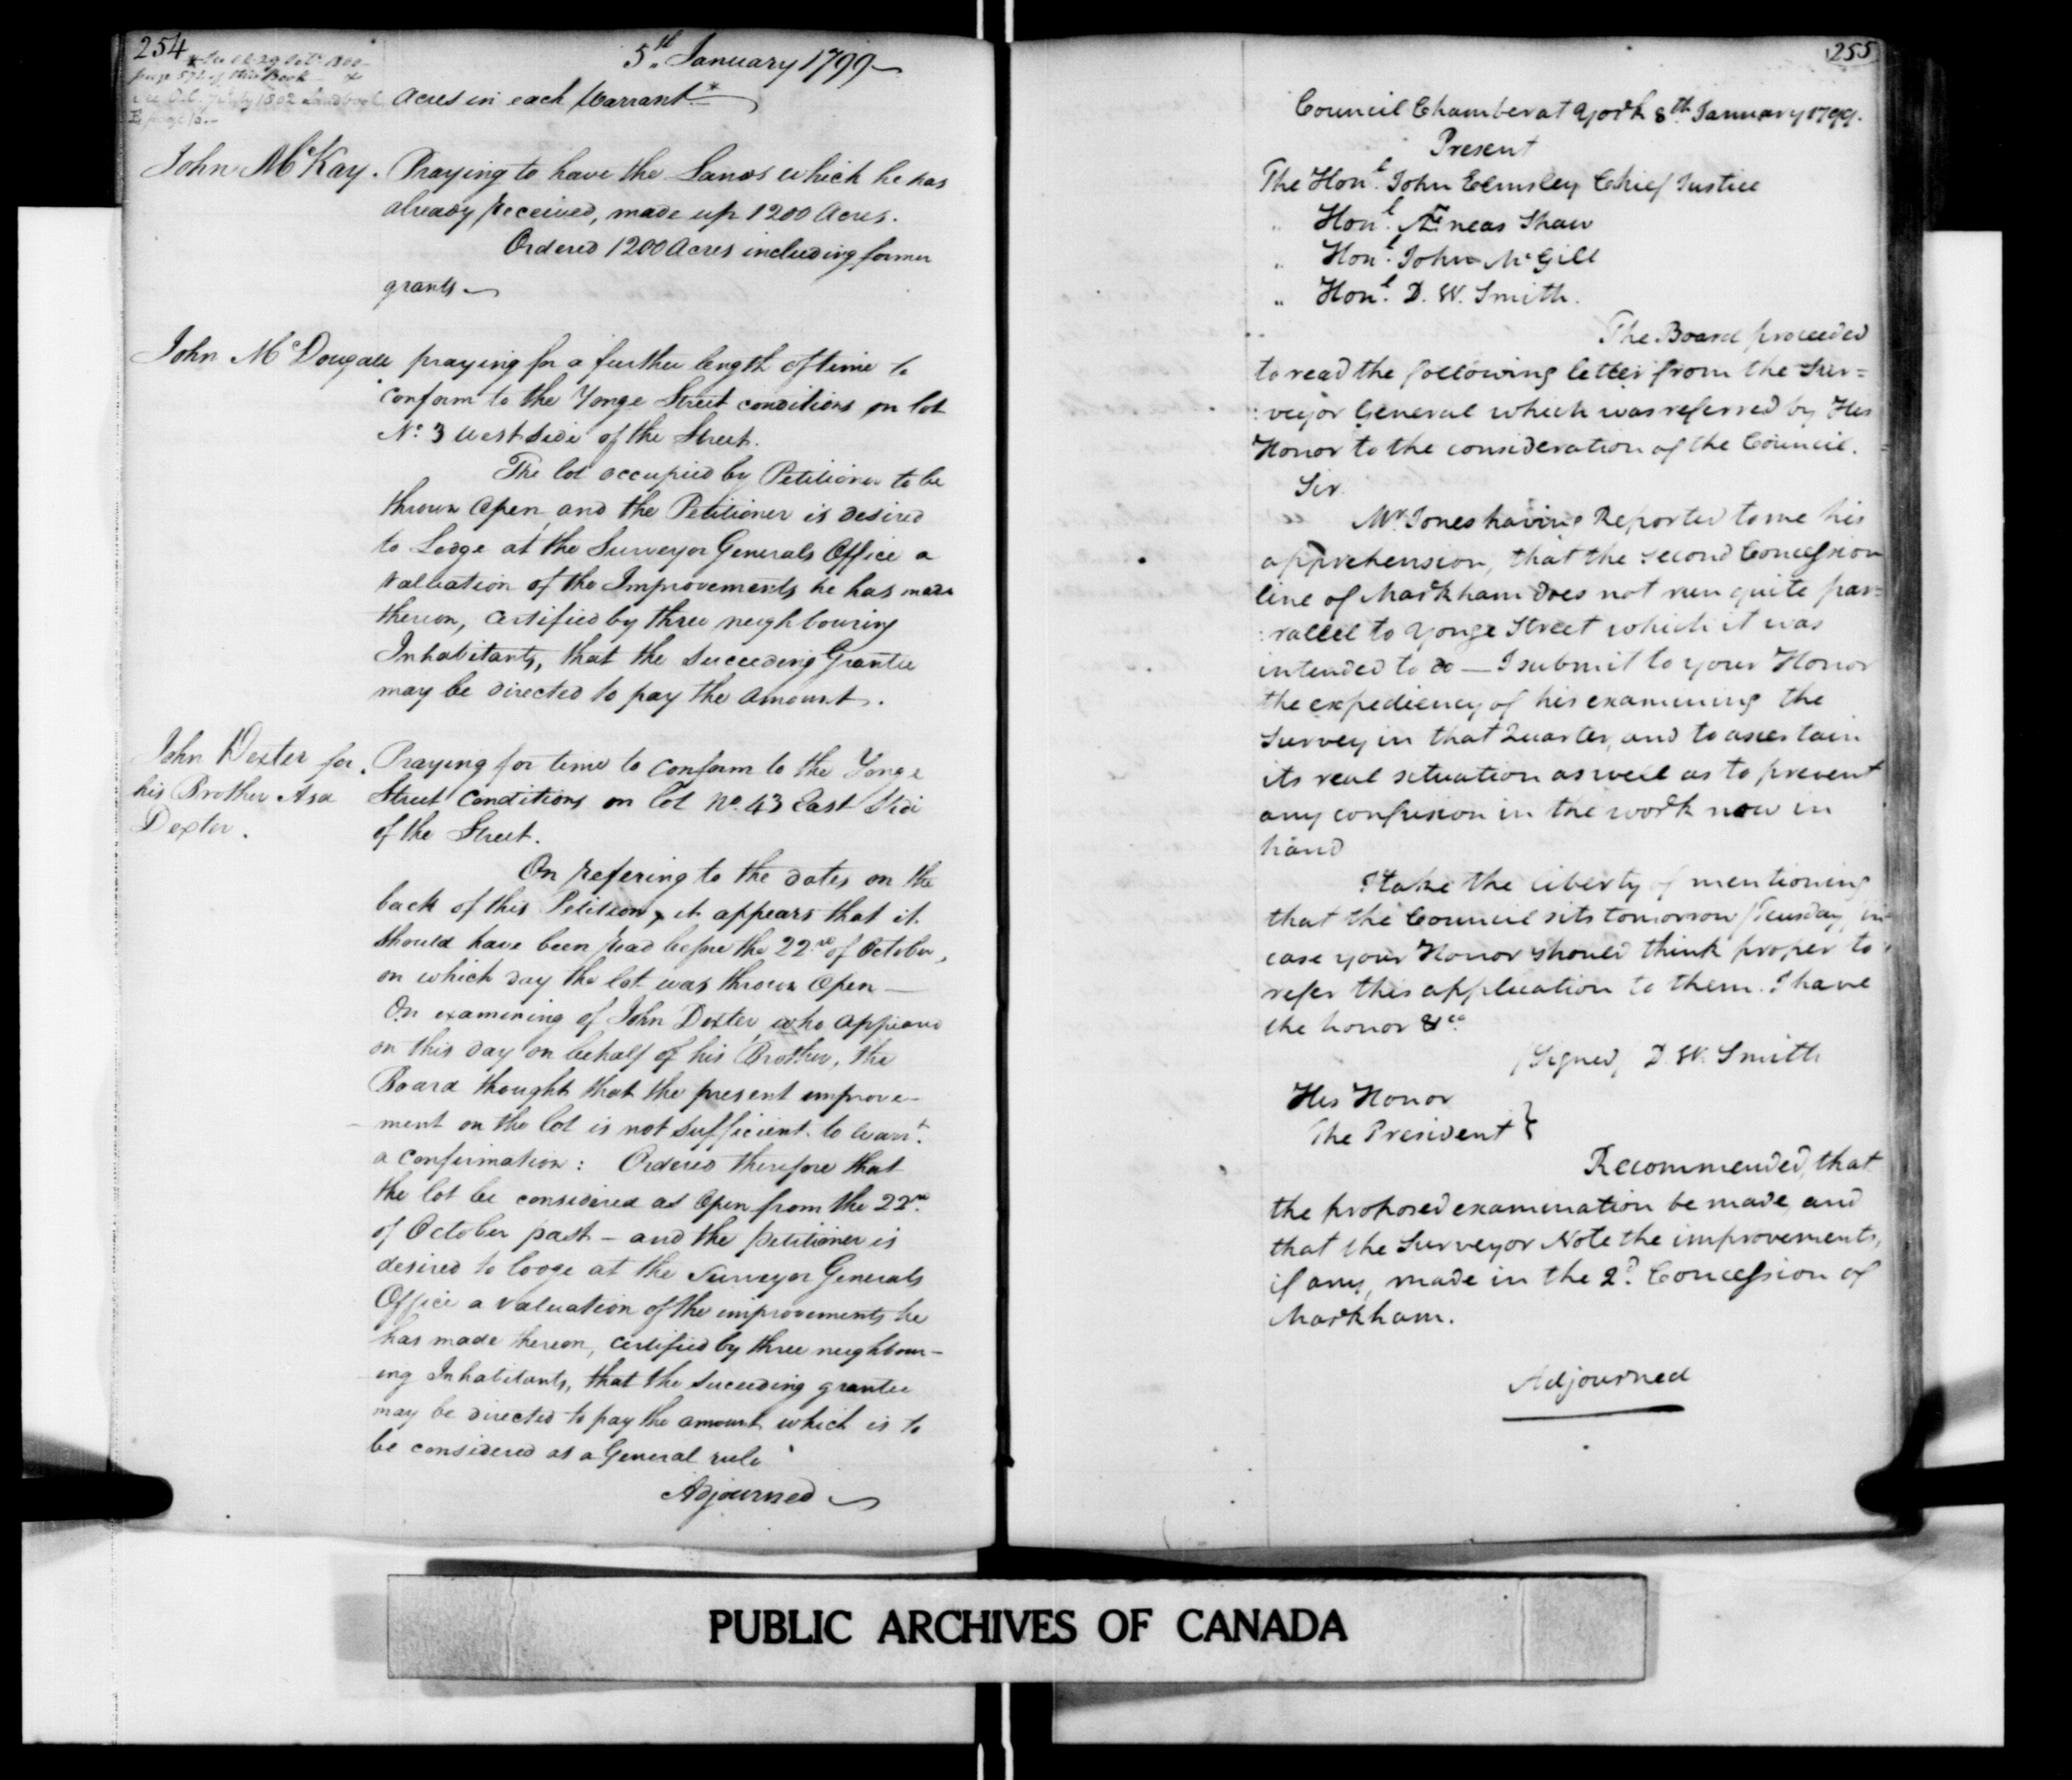 254
5th January 1799
page 571 of this Book
acres in each Warrant *
John McKay. Praying to have the Lands which he has
already received, made up 1200 Acres.
Ordered 1200 Acres including former
grants
John McDougall praying for a further length of time to
conform to the Yonge Street conditions on lot
No. 3 West Side of the Street.
The lot occupied by Petitioner to be
thrown open and the Petitioner is desired
to Lodge at the Surveyor Generals Office a
valuation of the Improvements he has made
thereon, certified by three neighbouring
Inhabitants, that the succeeding Grantee
may be directed to pay the amount.
John Dexter for
his Brother Asa
Dexter.
Praying for time to conform to the Yonge
Street conditions on lot No. 43 East Side
of the Street.
On refering to the dates on the
back of this Petition, it appears that it
should have been read before the 22nd of October,
on which day the lot was thrown open —
On examining of John Dexter, who appeared
on this day on behalf of his Brother, the
Board thought that the present improve-
ment on the lot is not sufficient to warrt.
a confirmation: Ordered therefore that
the lot be considered as open from the 22nd
of October past — and the petitioner is
desired to lodge at the Surveyor Generals
Office a valuation of the improvements he
has made thereon, certified by three neighbour-
ing Inhabitants, that the succeeding grantee
may be directed to pay the amount which is to
be considered as a General rule
Adjourned
255
Council Chamber at York 8th January 1799.
Present
The Honl. John Elmsley Chief Justice
" Honl. Æneas Shaw
" Honl. John McGill
" Honl. D. W. Smith.
The Board proceeded
to read the following letter from the Sur=
:veyor General which was referred by His
Honor to the consideration of the Council.
Sir
Mr. Jones having Reported to me his
apprehension, that the second Concession
line of Markham does not run quite par=
:rallel to Yonge Street which it was
intended to do — I submit to your Honor
the expediency of his examining the
survey in that Quarter, and to ascertain
its real situation as well as to prevent
any confusion in the work now in
hand
I take the liberty of mentioning
that the Council sits tomorrow (Tuesday) in
case your Honor should think proper to
refer this application to them. I have
the honor &ca
(Signed) D. W. Smith
His Honor
The President }
Recommended, that
the proposed examination be made, and
that the Surveyor Note the improvements,
if any, made in the 2d. Concession of
Markham.
Adjourned
PUBLIC ARCHIVES OF CANADA